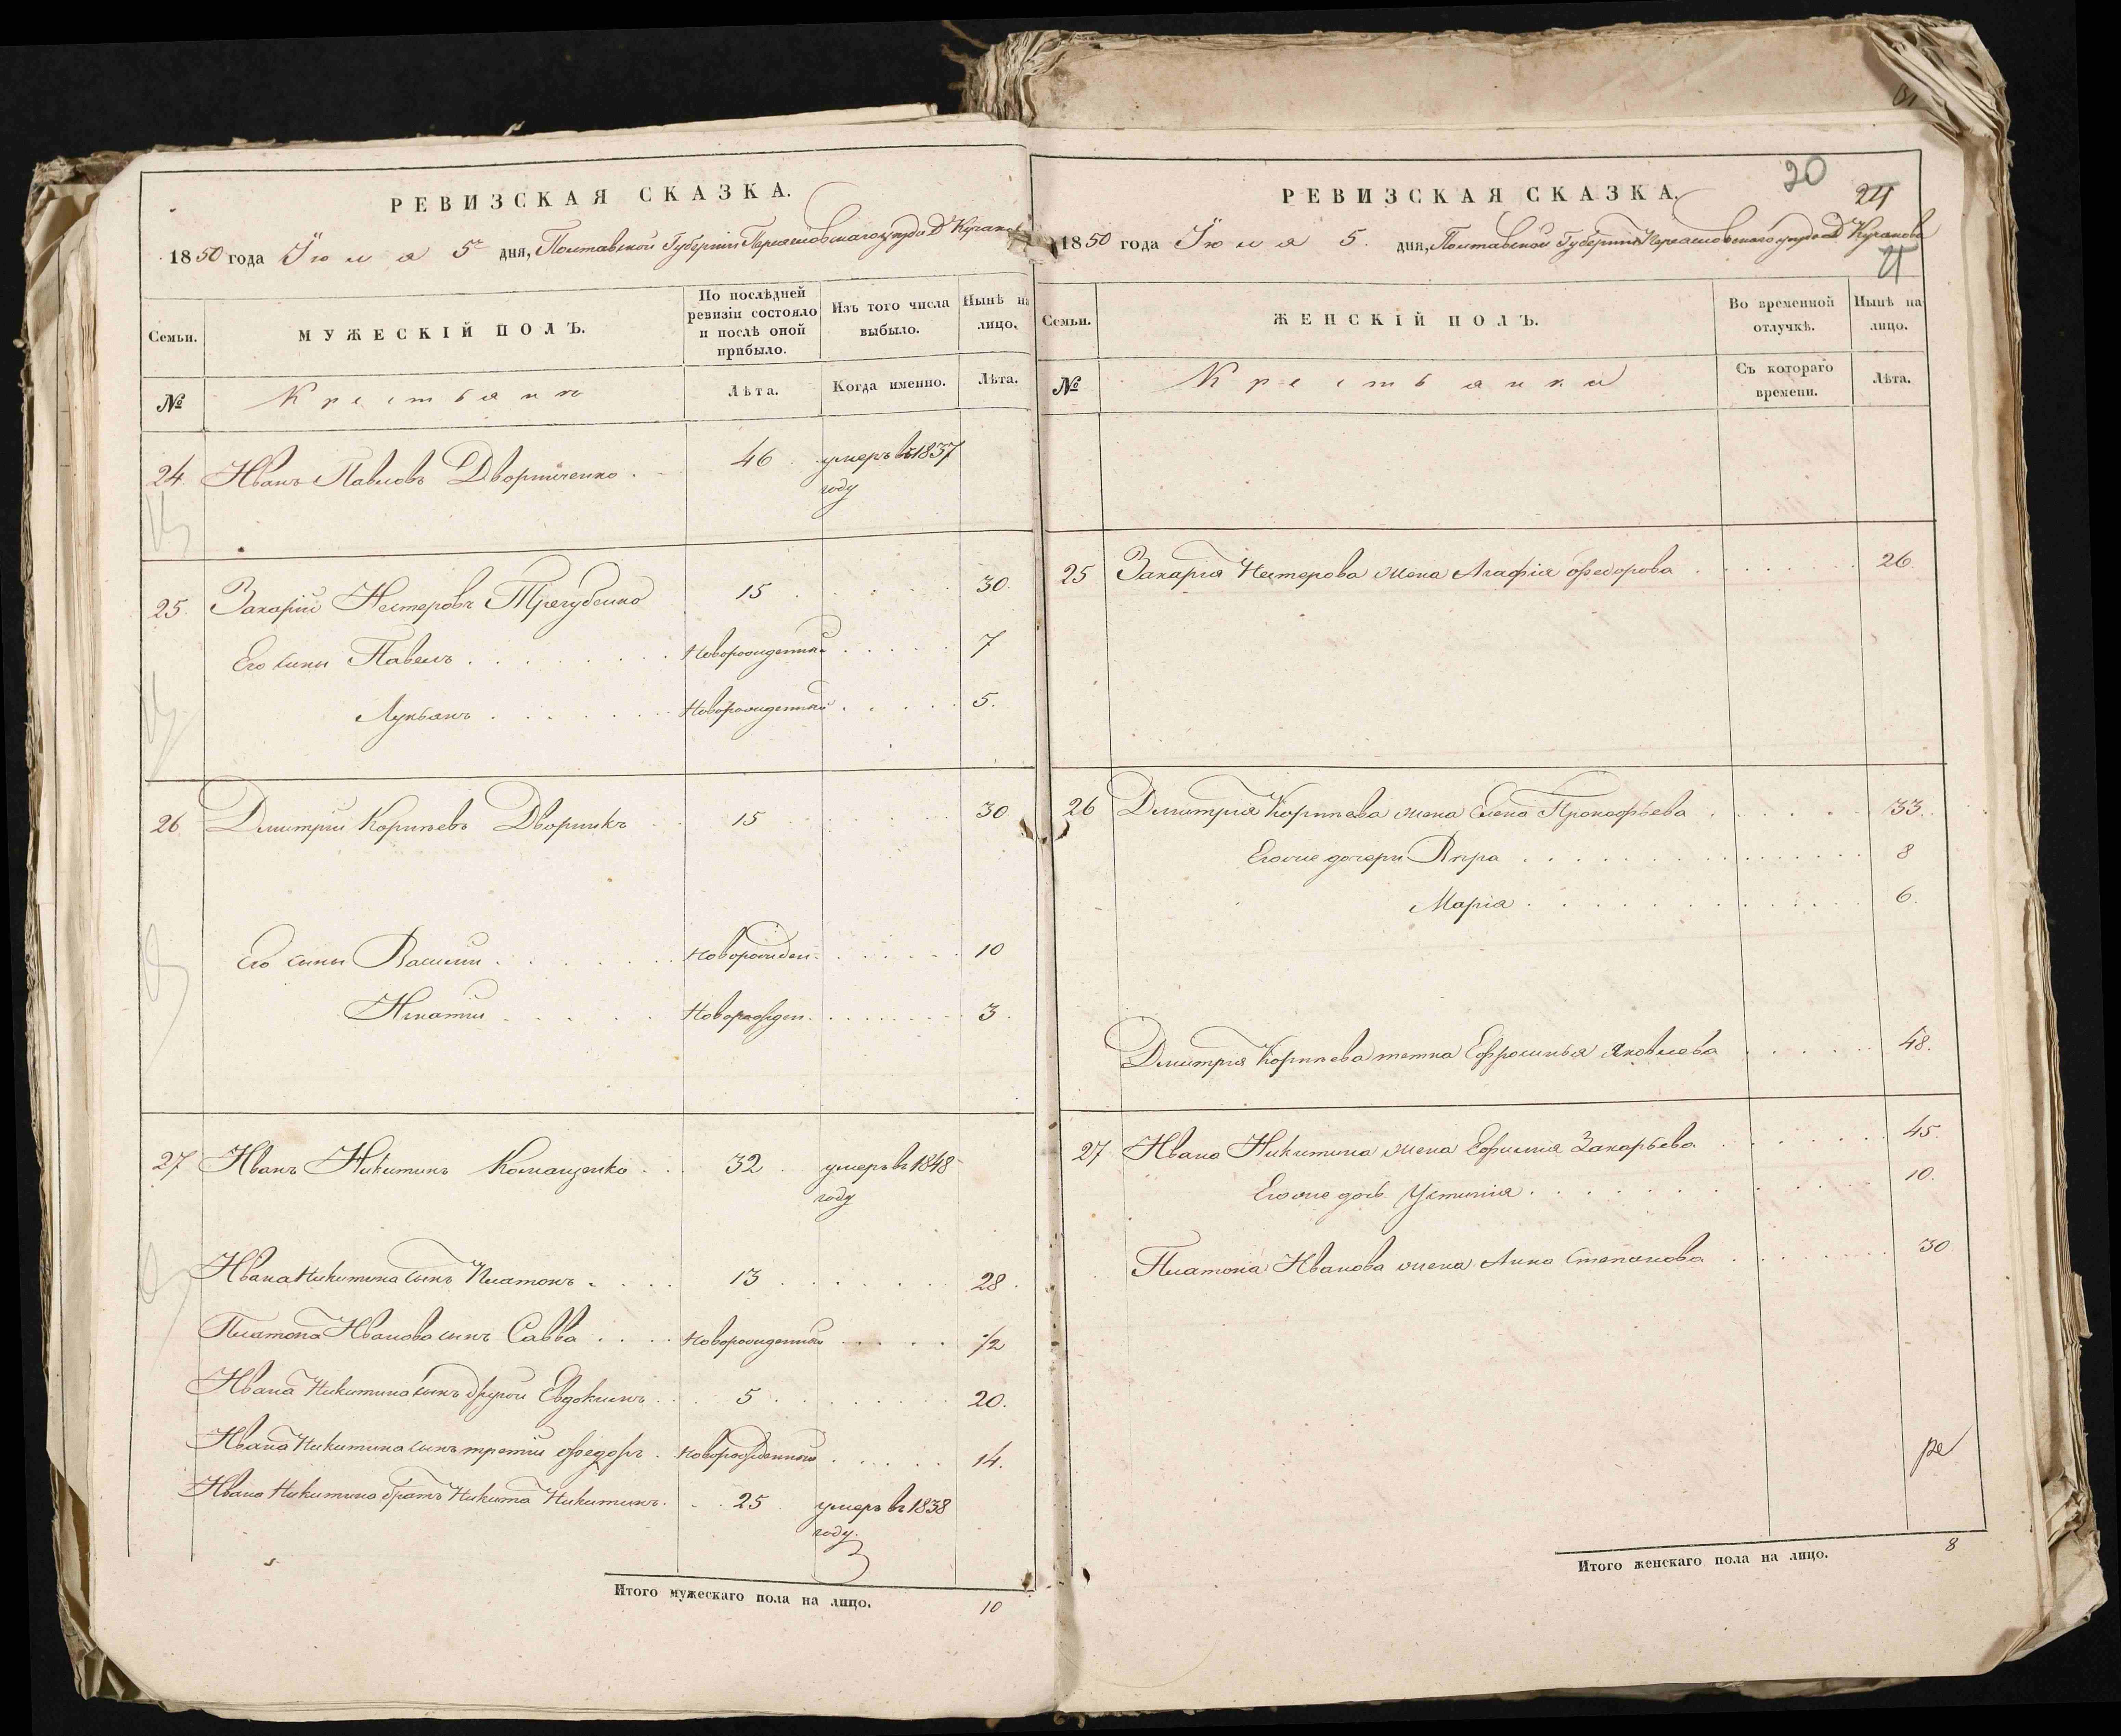 РЕВИЗСКАЯ СКАЗКА.
1850 года Іюля 5 дня, Полтавской Губерніи Переясловскаго уезда Д Кучакова
Семьи.
МУЖЕСКІЙ ПОЛЪ.
По послѣдней ревизіи состояло и послѣ оной прибыло.
Изъ того числа выбыло.
Нынѣ на лицо.
№
Крестьянъ
Лѣта.
Когда именно.
Лѣта.
24. Иванъ Павловъ Дворниченко. 46 умеръ въ 1837
году
25. Захарій Нестеровъ Трегубенко 15 30.
Его сыны Павелъ Новорожденный 7
Лукьянъ Новорожденный 5.
26. Дмитрій Корнѣевъ Дворникъ 15 30
Его сыны Василій Новорожден. 10
Игнатій Новорожден. 3.
27 Иванъ Никитинъ Комащенко 32 умеръ въ 1848
году
Ивана Никитина сынъ Платонъ 13 28.
Платона Иванова сынъ Савва Новорожденный 1/2
Ивана Никитина сынъ другой Евдокимъ 5 20.
Ивана Никитина сынъ третій Федоръ Новорожденный 14.
Ивана Никитина братъ Никита Никитинъ. 25 умеръ въ 1838
году.
Итого мужескаго пола на лицо. 10
20
24
21
РЕВИЗСКАЯ СКАЗКА.
1850 года Іюля 5. дня, Полтавской Губерніи Переясловскаго уезда Д Кучакова
Семьи.
ЖЕНСКІЙ ПОЛЪ.
Во временной отлучкѣ.
Нынѣ на лицо.
№
Крестьянки
Съ котораго времени.
Лѣта.
25 Захарія Нестерова жена Агафія Федорова 26.
26 Дмитрія Корнѣева жена Елена Прокофьева 33.
Егоже дочери 8
Марія 6.
Дмитрія Корнѣева тетка Ефросинья Яковлева 48.
27 Ивана Никитина жена Ефимія Захарьева 45.
Егоже дочь Устинія 10.
Платона Иванова жена Анна Степанова 30
Итого женскаго пола на лицо. 8